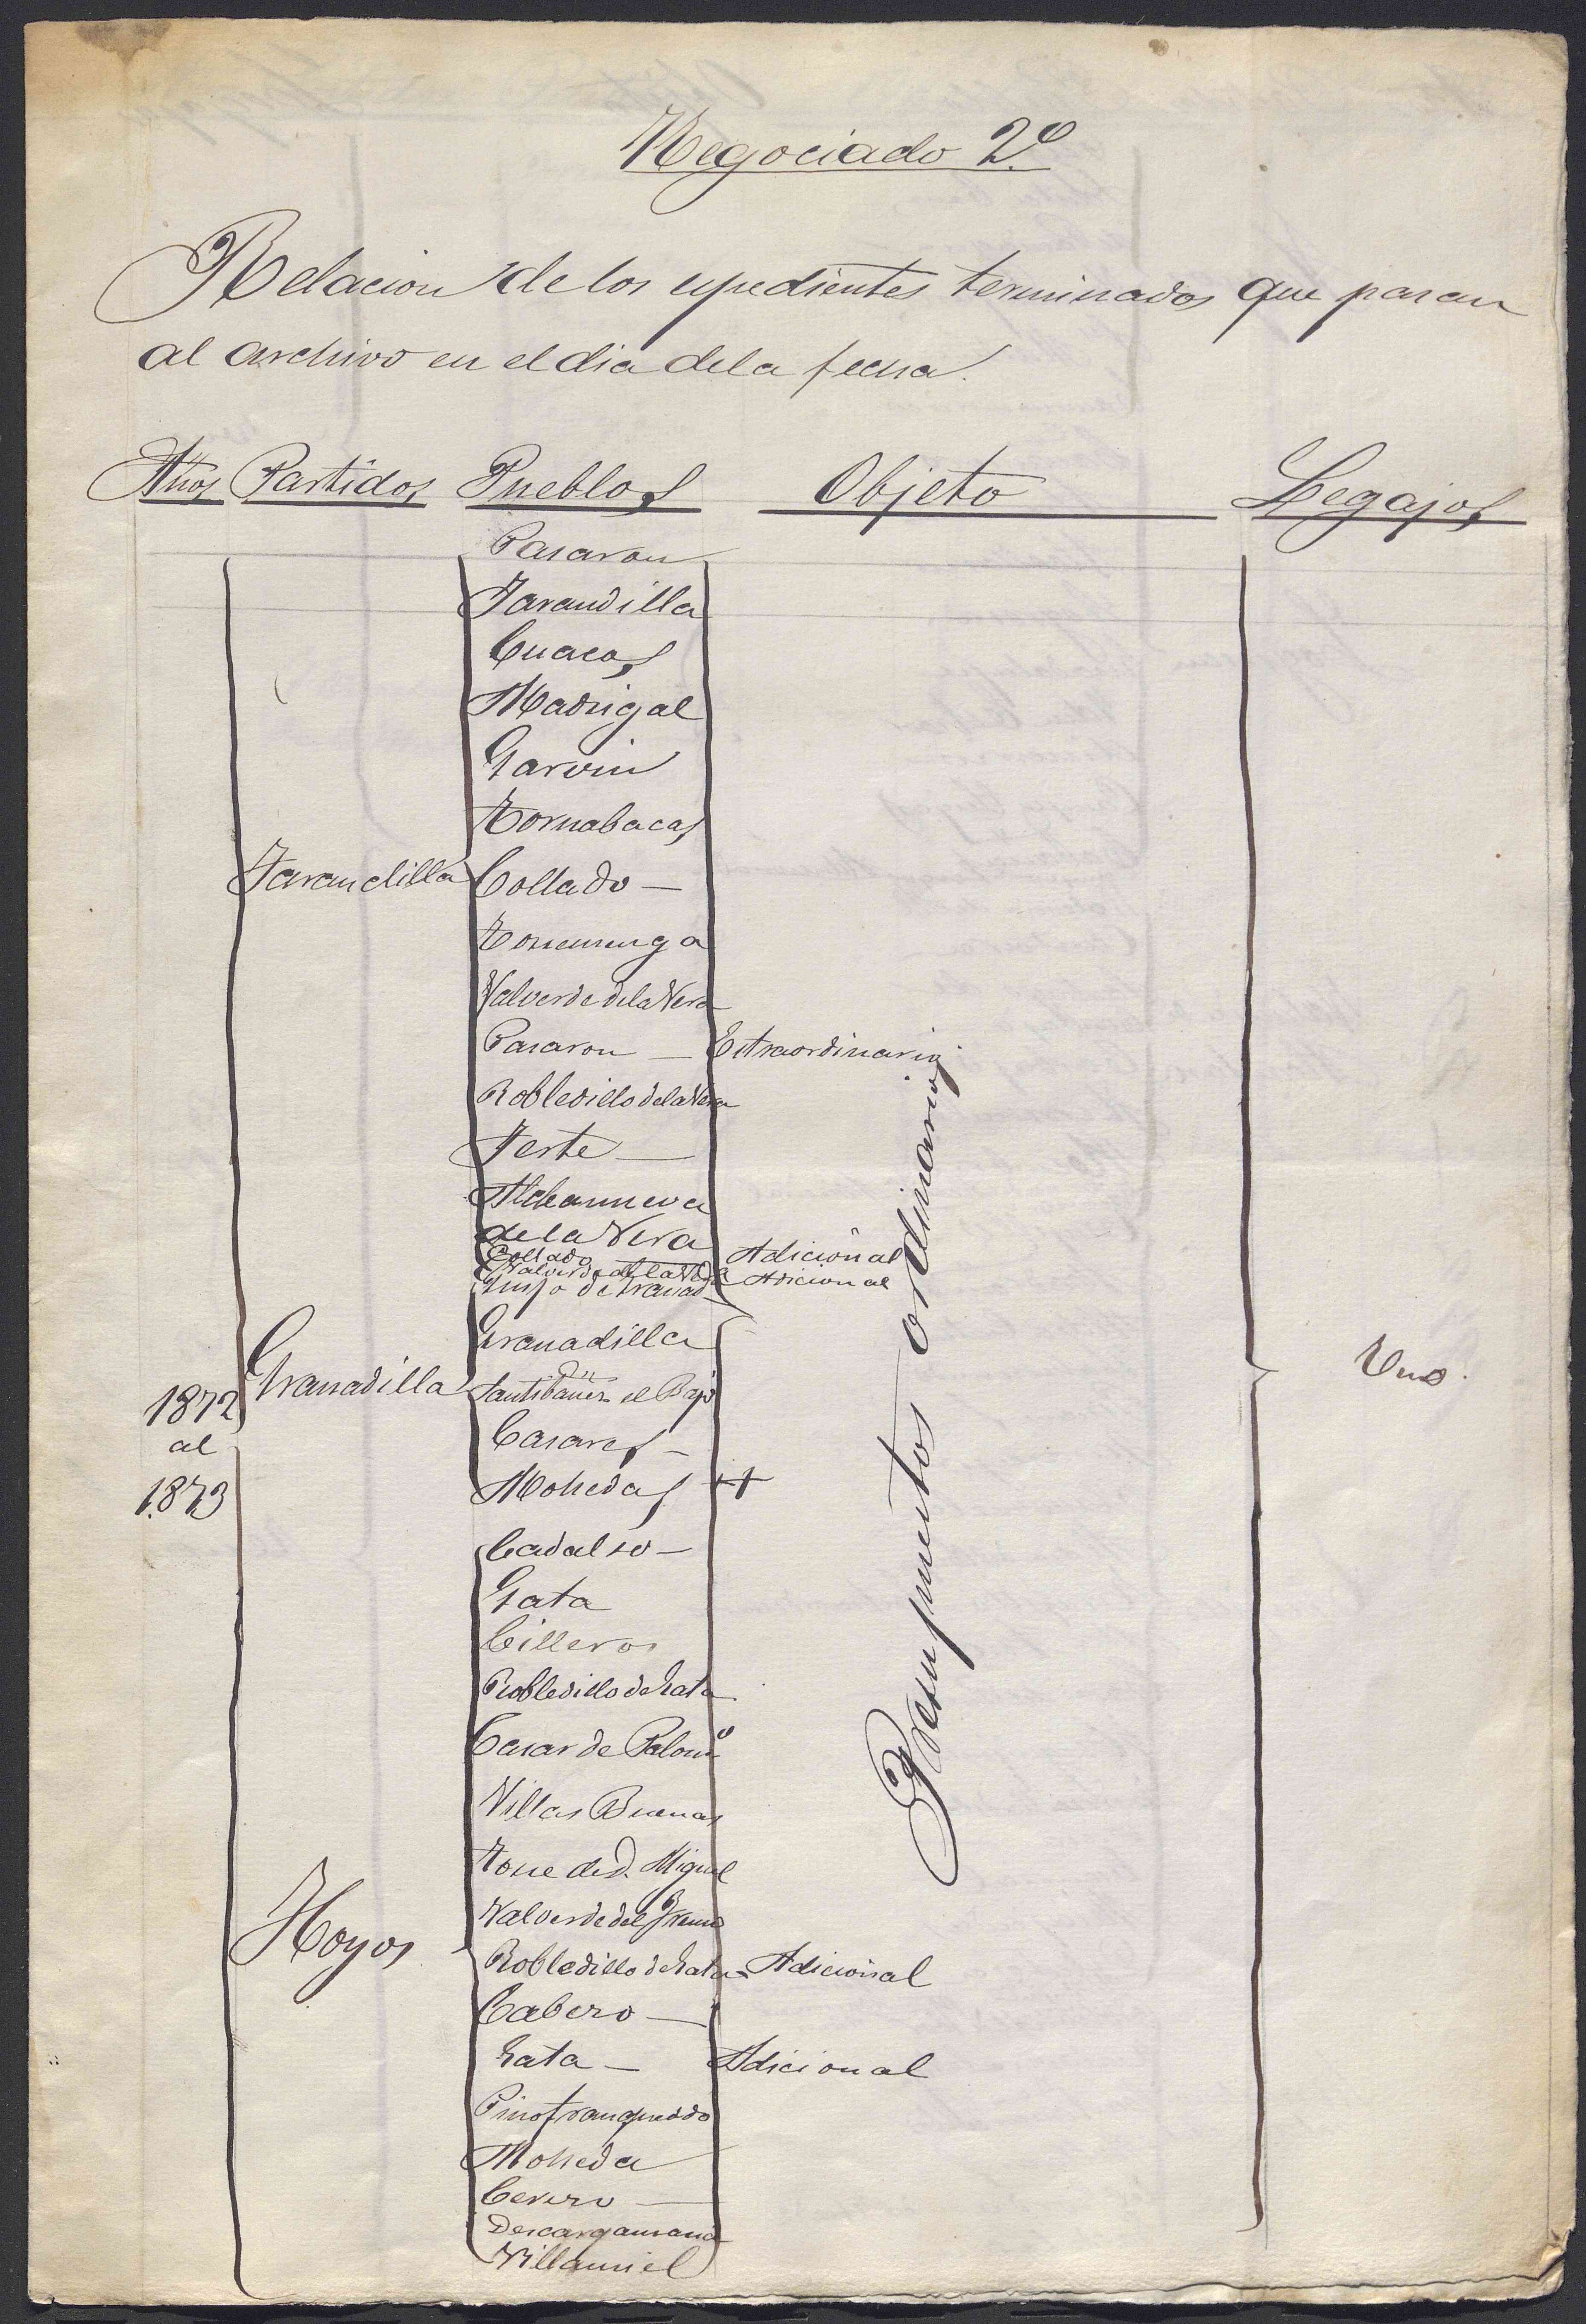 Negociado 2º
Relacion de los espedientes terminados que pasan
al archivo en el dia de la fecha.
Años Partidos Pueblos Objeto Legajos
Pasaron
Jarandilla
Cuacos
Madrigal
Garvin
Tornabacas
Jarandilla Collado —
Torremenga
Valverde de la Vera
Pasaron — Estraordinario
Robledillo de la Vera
Jerte —
Aldeanueva
de la Vera
Collado — Adicional
Valverde de la Vera Adicional
Guijo de Granad
Granadilla
Granadilla Santibañez el Bajo
Casares —
Mohedas
1872
al
1873
Presupuestos ordinarios
Uno.
Cadalso —
Gata
Cilleros
Robledillo de Gata
Casar de Palomº
Villas Buenas
Torre de D. Miguel
Valverde del Fresno
Hoyos Robledillo de Gata — Adicional
Cabero —
Gata — Adicional
Pinofranqueado
Moheda
Cerero —
Descargamaria
Villamiel